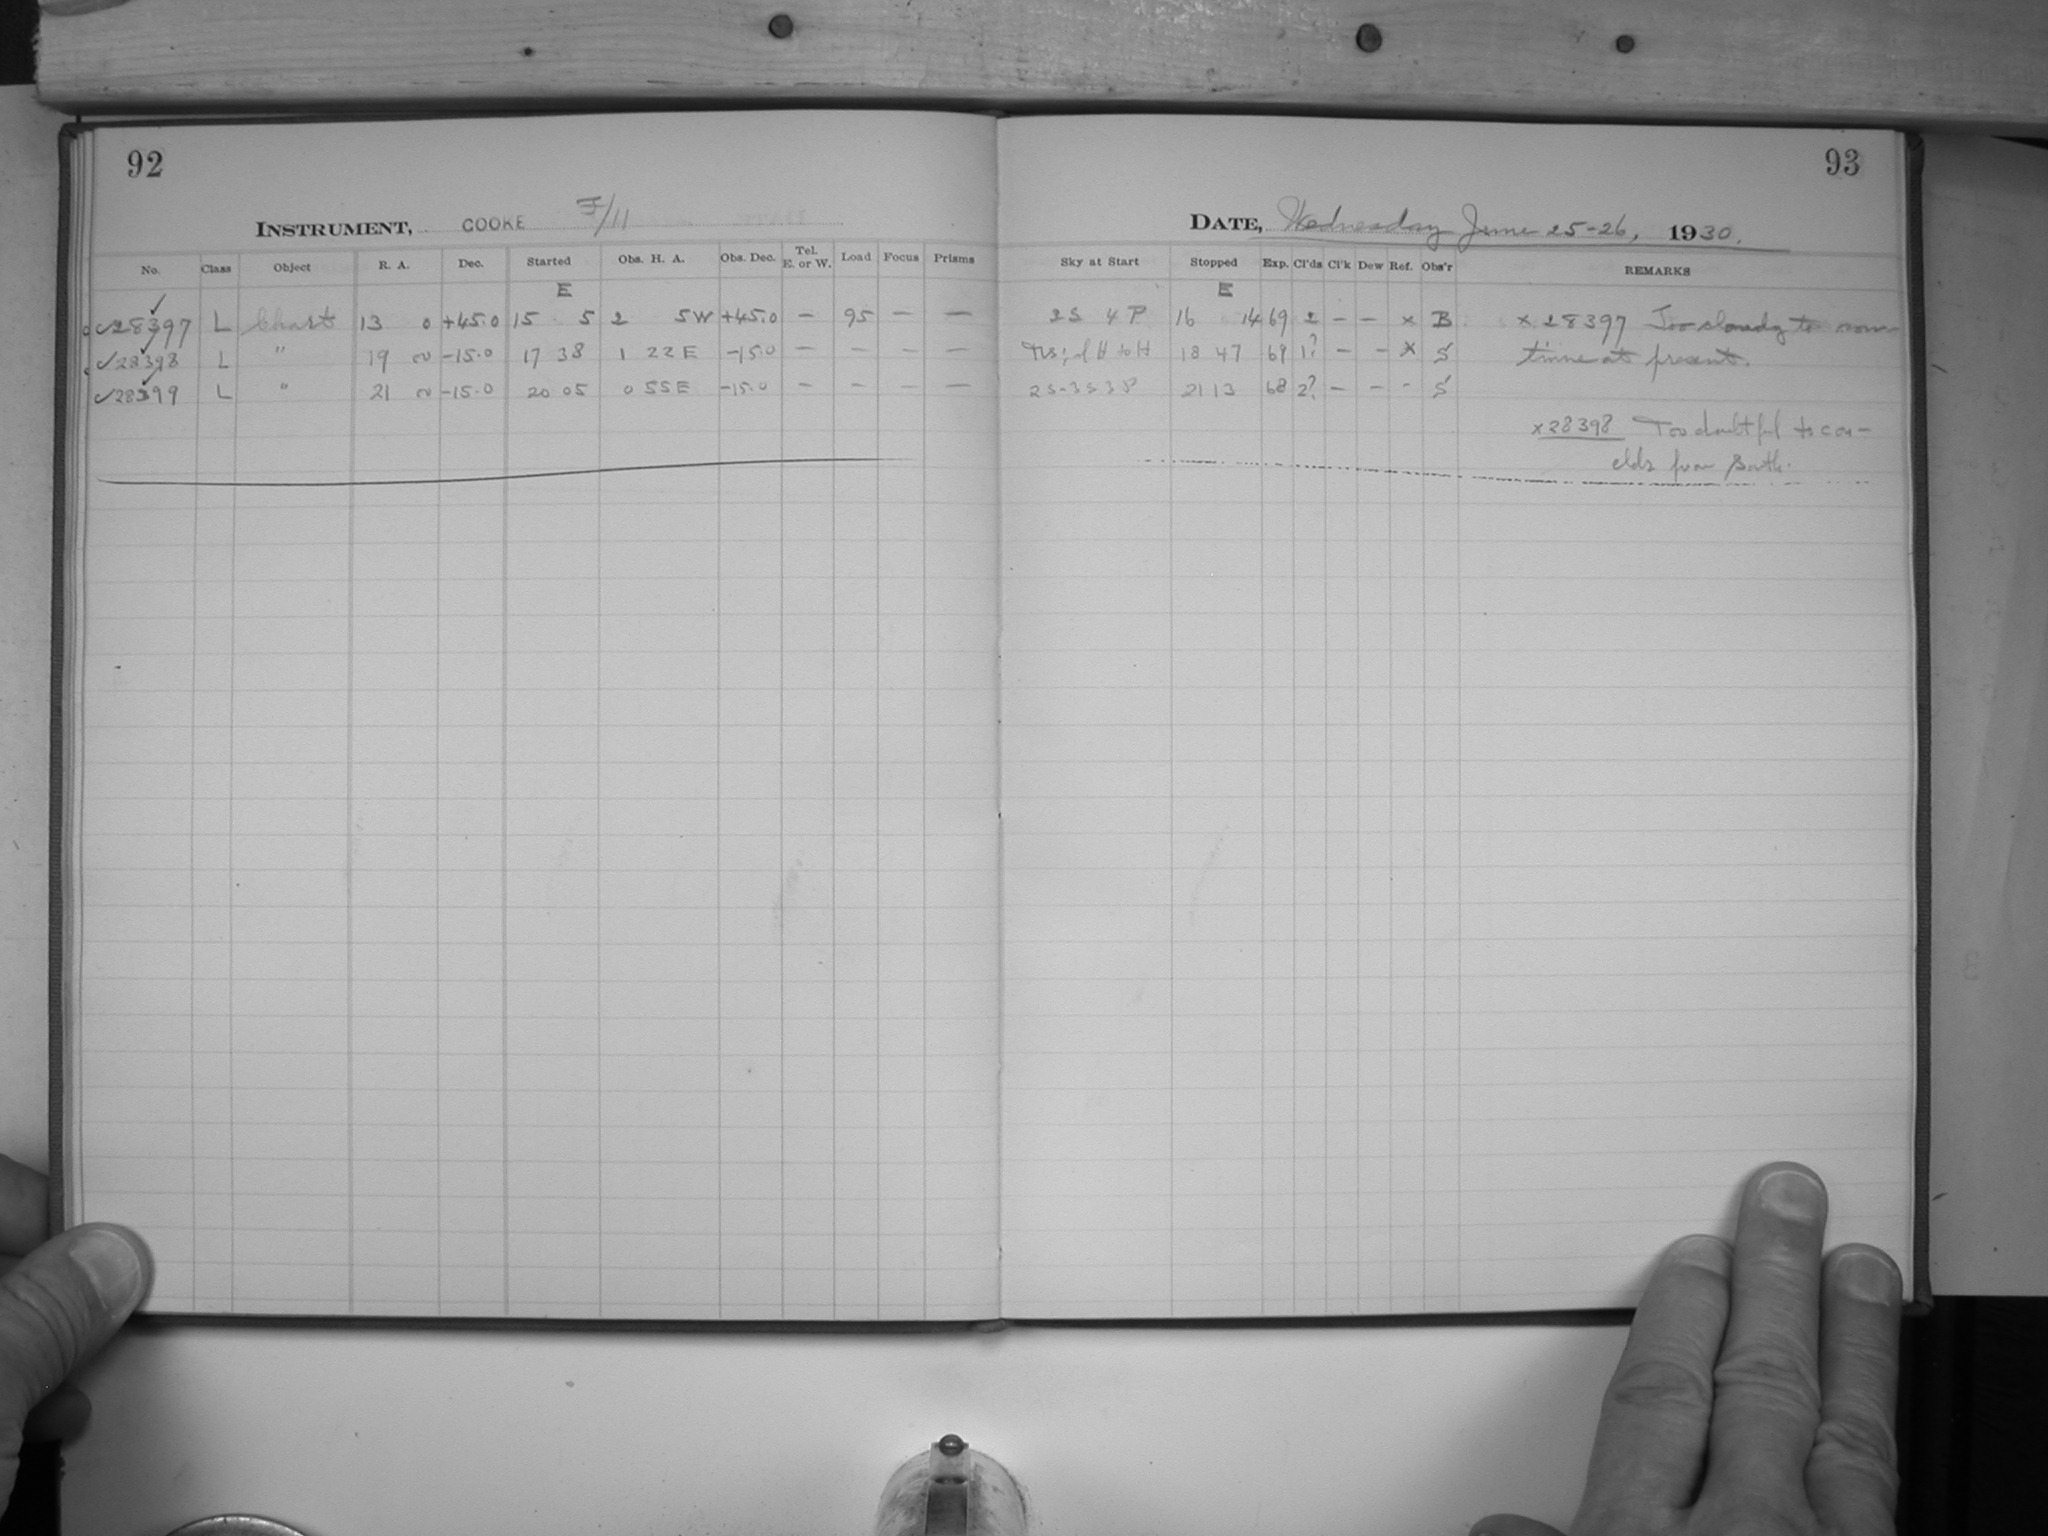 92
93
INSTRUMENT, COOKE F/11
DATE, Wednesday June 25-26, 1930.
No. Class Object R. A. Dec. Started Obs. H. A. Obs. Dec. Tel. E. or W. Load Focus Prisms Sky at Start Stopped Exp. Cl'ds Cl'k Dew Ref. Obs'r REMARKS
E E
✓28397 L Chart 13 0 +45.0 15 5 2 5W +45.0 — 95 — — 2S 4P 16 14 69 2 — — x B x 28397 Too cloudy to con-
✓28398 L " 19 ~ -15.0 17 38 1 22E -15.0 — — — — H to H 18 47 69 1? — — x S tinue at present.
✓28399 L " 21 ~ -15.0 20 05 0 55E -15.0 — — — — 2S-3S3P 21 13 68 2? — — - S
x28398 Too doubtful to con-
clds from South.